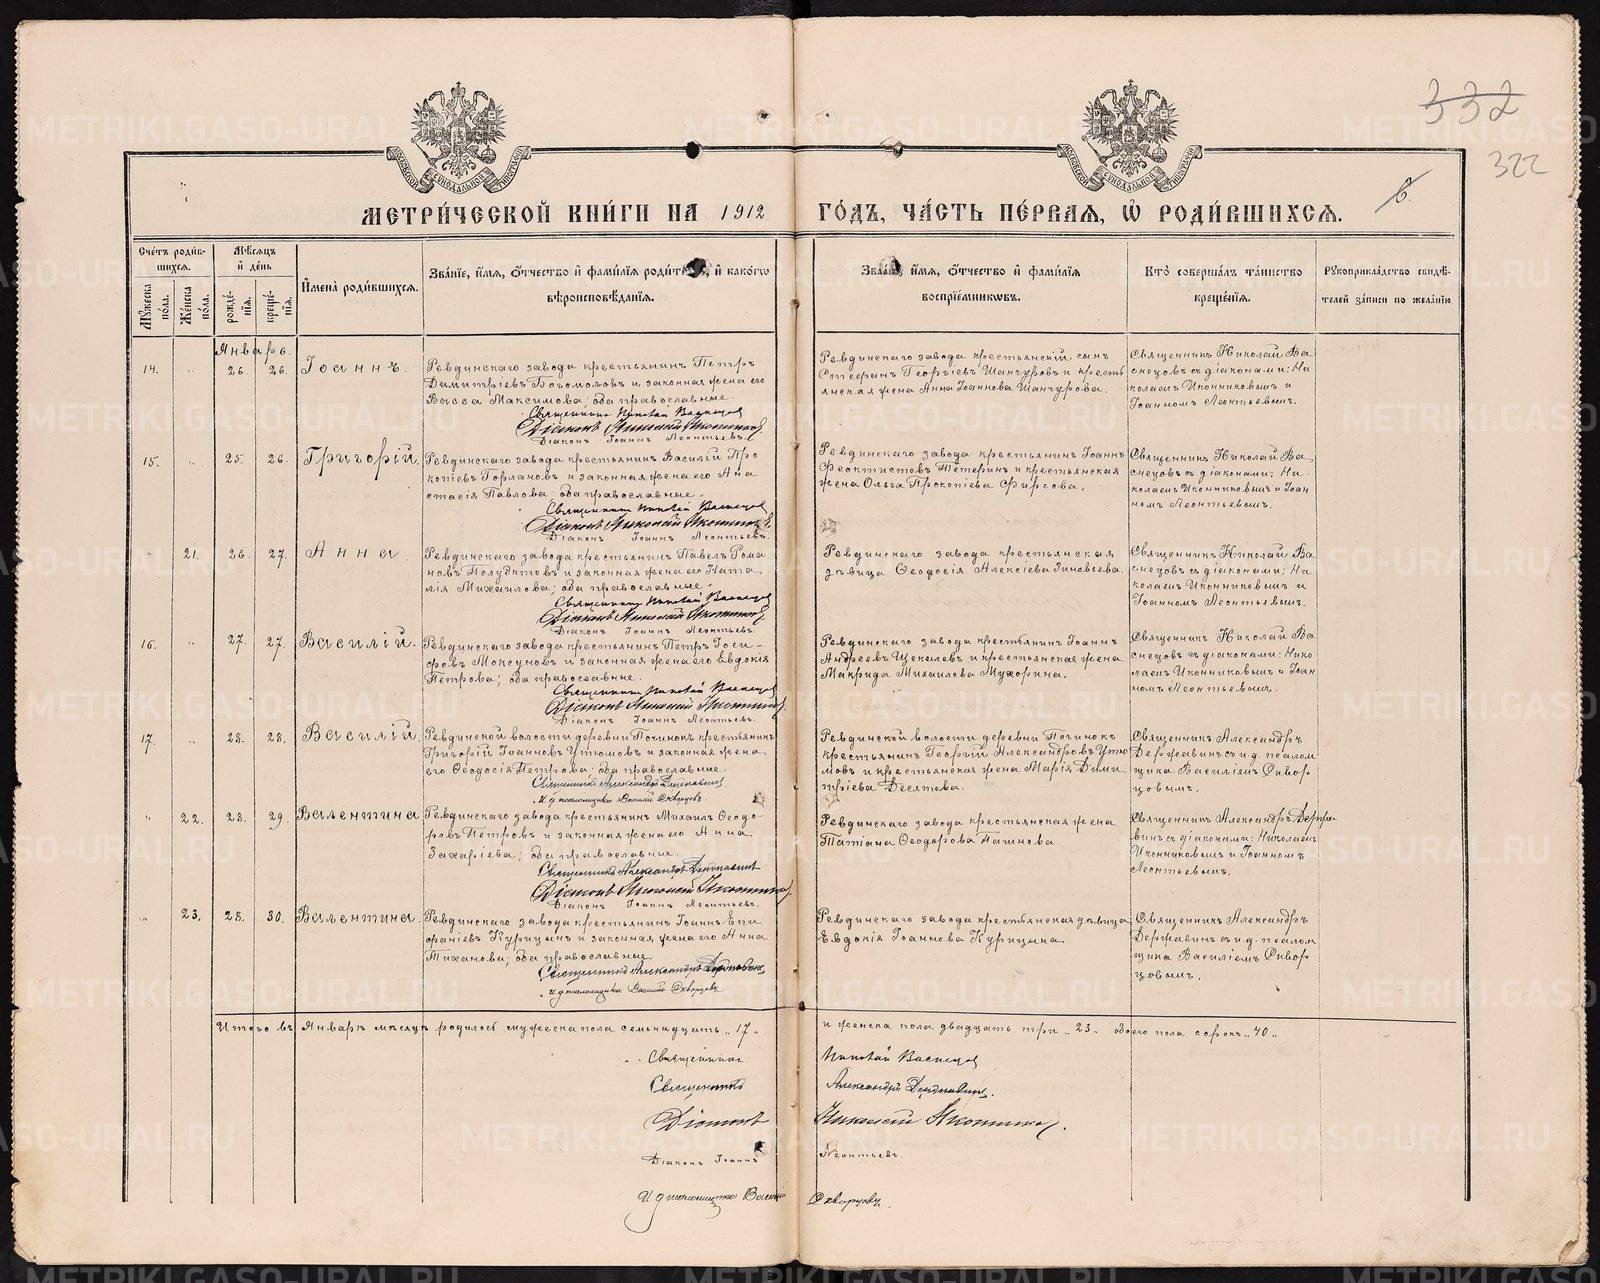 332
322
6.
МОСКОВСКОЙ СѴНОДАЛЬНОЙ ТИПОГРАФІИ
МОСКОВСКОЙ СѴНОДАЛЬНОЙ ТИПОГРАФІИ
МЕТРИ́ЧЕСКОЙ КНИ́ГИ НА 1912 ГО́ДЪ, ЧА́СТЬ ПЕ́РВАЯ, Ѡ РОДИ́ВШИХСЯ.
Счетъ роди́вшихся.
Му́жеска по́ла.
Же́нска по́ла.
Мѣсяцъ и день
рожде́нїя.
креще́нїя.
Имена̀ роди́вшихся.
Зва́нїе, и́мя, о́тчество и фами́лїя роди́телей, и како́гѡ вѣроисповѣ́данїя.
Зва́нїе, и́мя, о́тчество и фами́лїя воспрїе́мникѡвъ.
Кто̀ соверша́лъ та́инство креще́нїя.
Рукоприкла́дство свидѣ́телей за́писи по жела́нїю
Январь.
14. „ 26. 26. Іоаннъ.
Ревдинскаго завода крестьянинъ Петръ
Димитріевъ Богомоловъ и законная жена его
Васса Максимова; оба православные.
Священникъ Николай Васнецов
Діаконъ Николай Иконников
Діаконъ Іоаннъ Леонтьевъ.
Ревдинскаго завода крестьянскій сынъ
Стефанъ Георгіевъ Шанчуровъ и кресть
янская жена Анна Іоаннова Шанчурова.
Священникъ Николай Ва
снецовъ съ діаконами: Ни
колаемъ Иконниковымъ и
Іоанномъ Леонтьевымъ.
15. „ 25. 26. Григорій.
Ревдинскаго завода крестьянинъ Василій Про
копіевъ Горлановъ и законная жена его Ана
стасія Павлова; оба православные.
Священникъ Николай Васнецов
Діаконъ Николай Иконников
Діаконъ Іоаннъ Леонтьевъ.
Ревдинскаго завода крестьянинъ Іоаннъ
Феоктистовъ Тетеринъ и крестьянская
жена Ольга Прокопіева Фирсова.
Священникъ Николай Ва
снецовъ съ діаконами: Ни
колаемъ Иконниковымъ и Іоан
номъ Леонтьевымъ.
„ 21. 26. 27. Анна.
Ревдинскаго завода крестьянинъ Павелъ Рома
новъ Полуектовъ и законная жена его Ната
лія Михаилова; оба православные.
Священникъ Николай Васнецов
Діаконъ Николай Иконников
Діаконъ Іоаннъ Леонтьевъ.
Ревдинскаго завода крестьянская
дѣвица Ѳеодосія Алексіева Зиновьева.
Священникъ Николай Ва
снецовъ съ діаконами: Ни
колаемъ Иконниковымъ и
Іоанномъ Леонтьевымъ.
16. „ 27. 27. Василій.
Ревдинскаго завода крестьянинъ Петръ Іоси-
фовъ Моксуновъ и законная жена его Евдокія
Петрова; оба православные.
Священникъ Николай Васнецов
Діаконъ Николай Иконников
Діаконъ Іоаннъ Леонтьевъ.
Ревдинскаго завода крестьянинъ Іоаннъ
Андреевъ Щекалевъ и крестьянская жена
Макрида Михаилова Мухорина.
Священникъ Николай Ва
снецовъ съ діаконами: Нико
лаемъ Иконниковымъ и Іоан
номъ Леонтьевымъ.
17. „ 28. 28. Василій.
Ревдинской волости деревни Починокъ крестьянинъ
Григорій Іоанновъ Утюмовъ и законная жена
его Ѳеодосія Петрова; оба православные.
Священникъ Александръ Державинъ
И д псаломщика Василій Скворцовъ.
Ревдинской волости деревни Починокъ
крестьянинъ Георгій Александровъ Утю
мовъ и крестьянская жена Марія Дими
тріева Десятова.
Священникъ Александръ
Державинъ съ и. д. псалом
щика Василіемъ Сквор
цовымъ.
„ 22. 28. 29. Валентина
Ревдинскаго завода крестьянинъ Михаилъ Ѳеодо-
ровъ Петровъ и законная жена его Анна
Захаріева; оба православные.
Священникъ Александръ Державинъ
Діаконъ Николай Иконников
Діаконъ Іоаннъ Леонтьевъ.
Ревдинскаго завода крестьянская жена
Татіана Ѳеодорова Пагинова.
Священникъ Александръ Держа
винъ съ діаконами: Николаемъ
Иконниковымъ и Іоанномъ
Леонтьевымъ.
„ 23. 28. 30. Валентина.
Ревдинскаго завода крестьянинъ Іоаннъ Епи
фаніевъ Курицынъ и законная жена его Анна
Тиханова; оба православные.
Священникъ Александръ Державинъ
И д псаломщика Василій Скворцовъ
Ревдинскаго завода крестьянская дѣвица
Евдокія Іоаннова Курицына.
Священникъ Александръ
Державинъ съ и. д. псалом
щика Василіемъ Сквор
цовымъ.
Итого въ Январѣ мѣсяцѣ родилось мужеска пола семьнадцать „17„ и женска пола двадцать три „23„ обоего пола сорокъ „40„
Священникъ Николай Васнецов
Священникъ Александръ Державинъ.
Діаконъ Николай Иконников.
Діаконъ Іоаннъ Леонтьевъ.
И д псаломщика Василій Скворцовъ.
METRIKI.GASO-URAL.RU